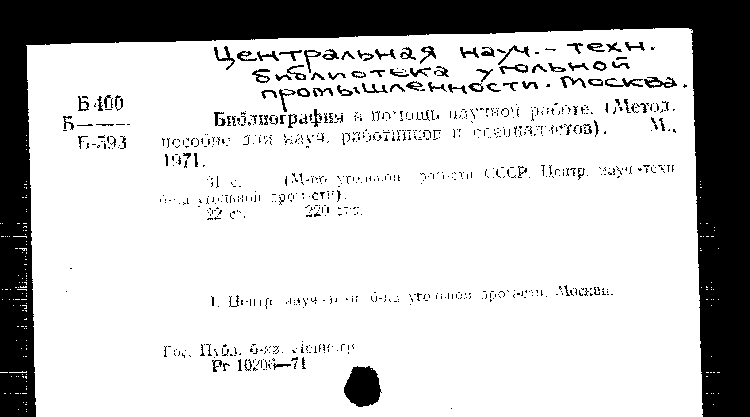 Центральная науч.-техн.
библиотека угольной
промышленности. Москва.
Б 400
Б—
Б-593
Библиография в помощь научной работе. (Метод.
пособие для науч. работников и специалистов). М.,
1971.
31 с. (М-во угольной пром-сти СССР. Центр. науч-техн
б-ка угольной пром-сти).
22 см. 220 экз.
1. Центр. науч-техн. б-ка угольной пром-сти. Москва.
Гос. Публ. б-ка.
Рг 10206—71